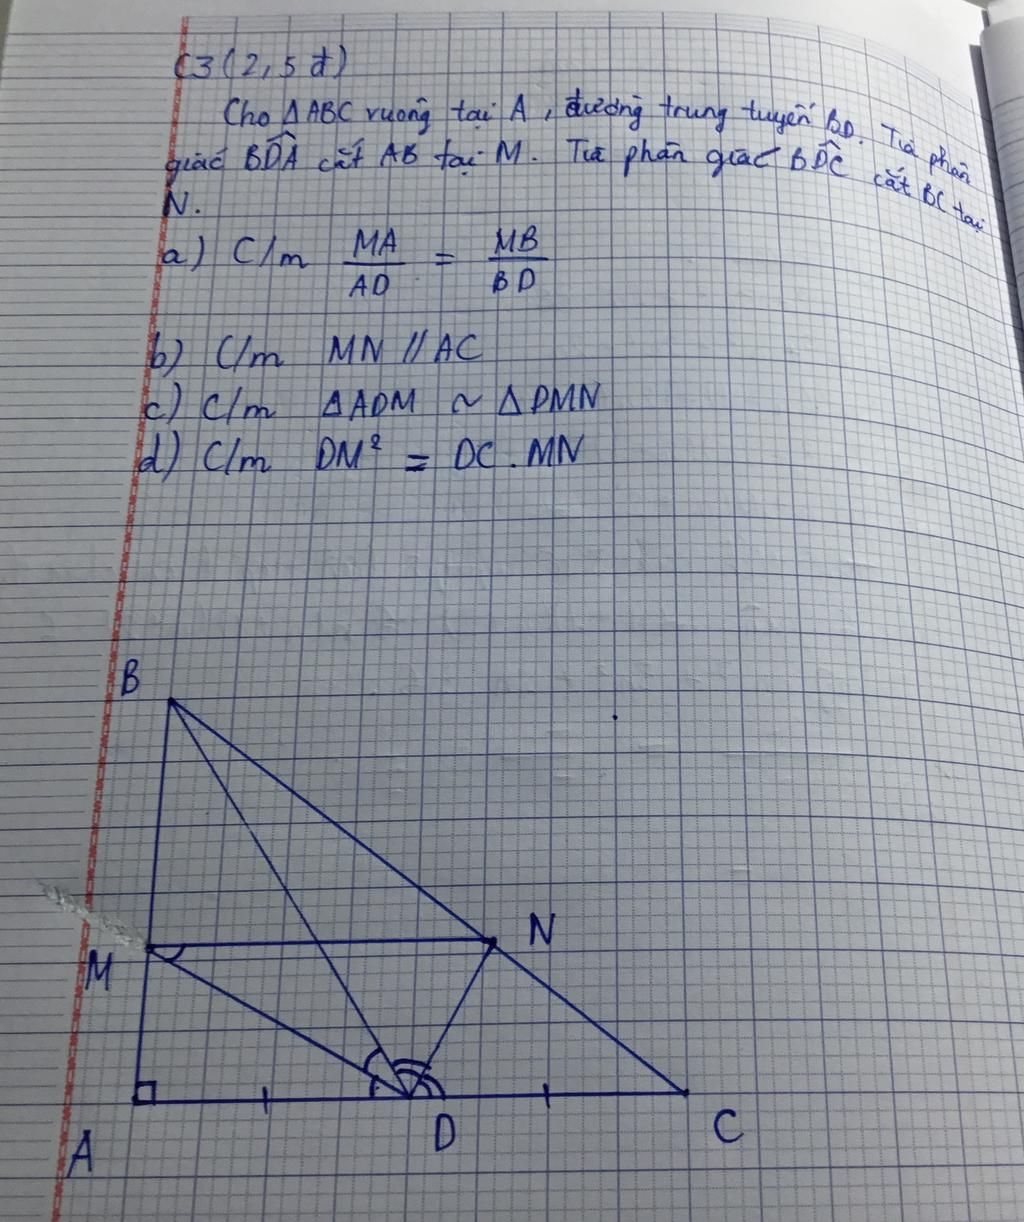 C3 (2,5 đ)
Cho ΔABC vuông tại A, đường trung tuyến BD. Tia phân
giác B̂DA cắt AB tại M. Tia phân giác B̂DC cắt BC tại
N.
a) C/m MA/AD = MB/BD
b) C/m MN // AC
c) C/m ΔADM ~ ΔDMN
d) C/m DM² = DC.MN
B
M
N
A
D
C